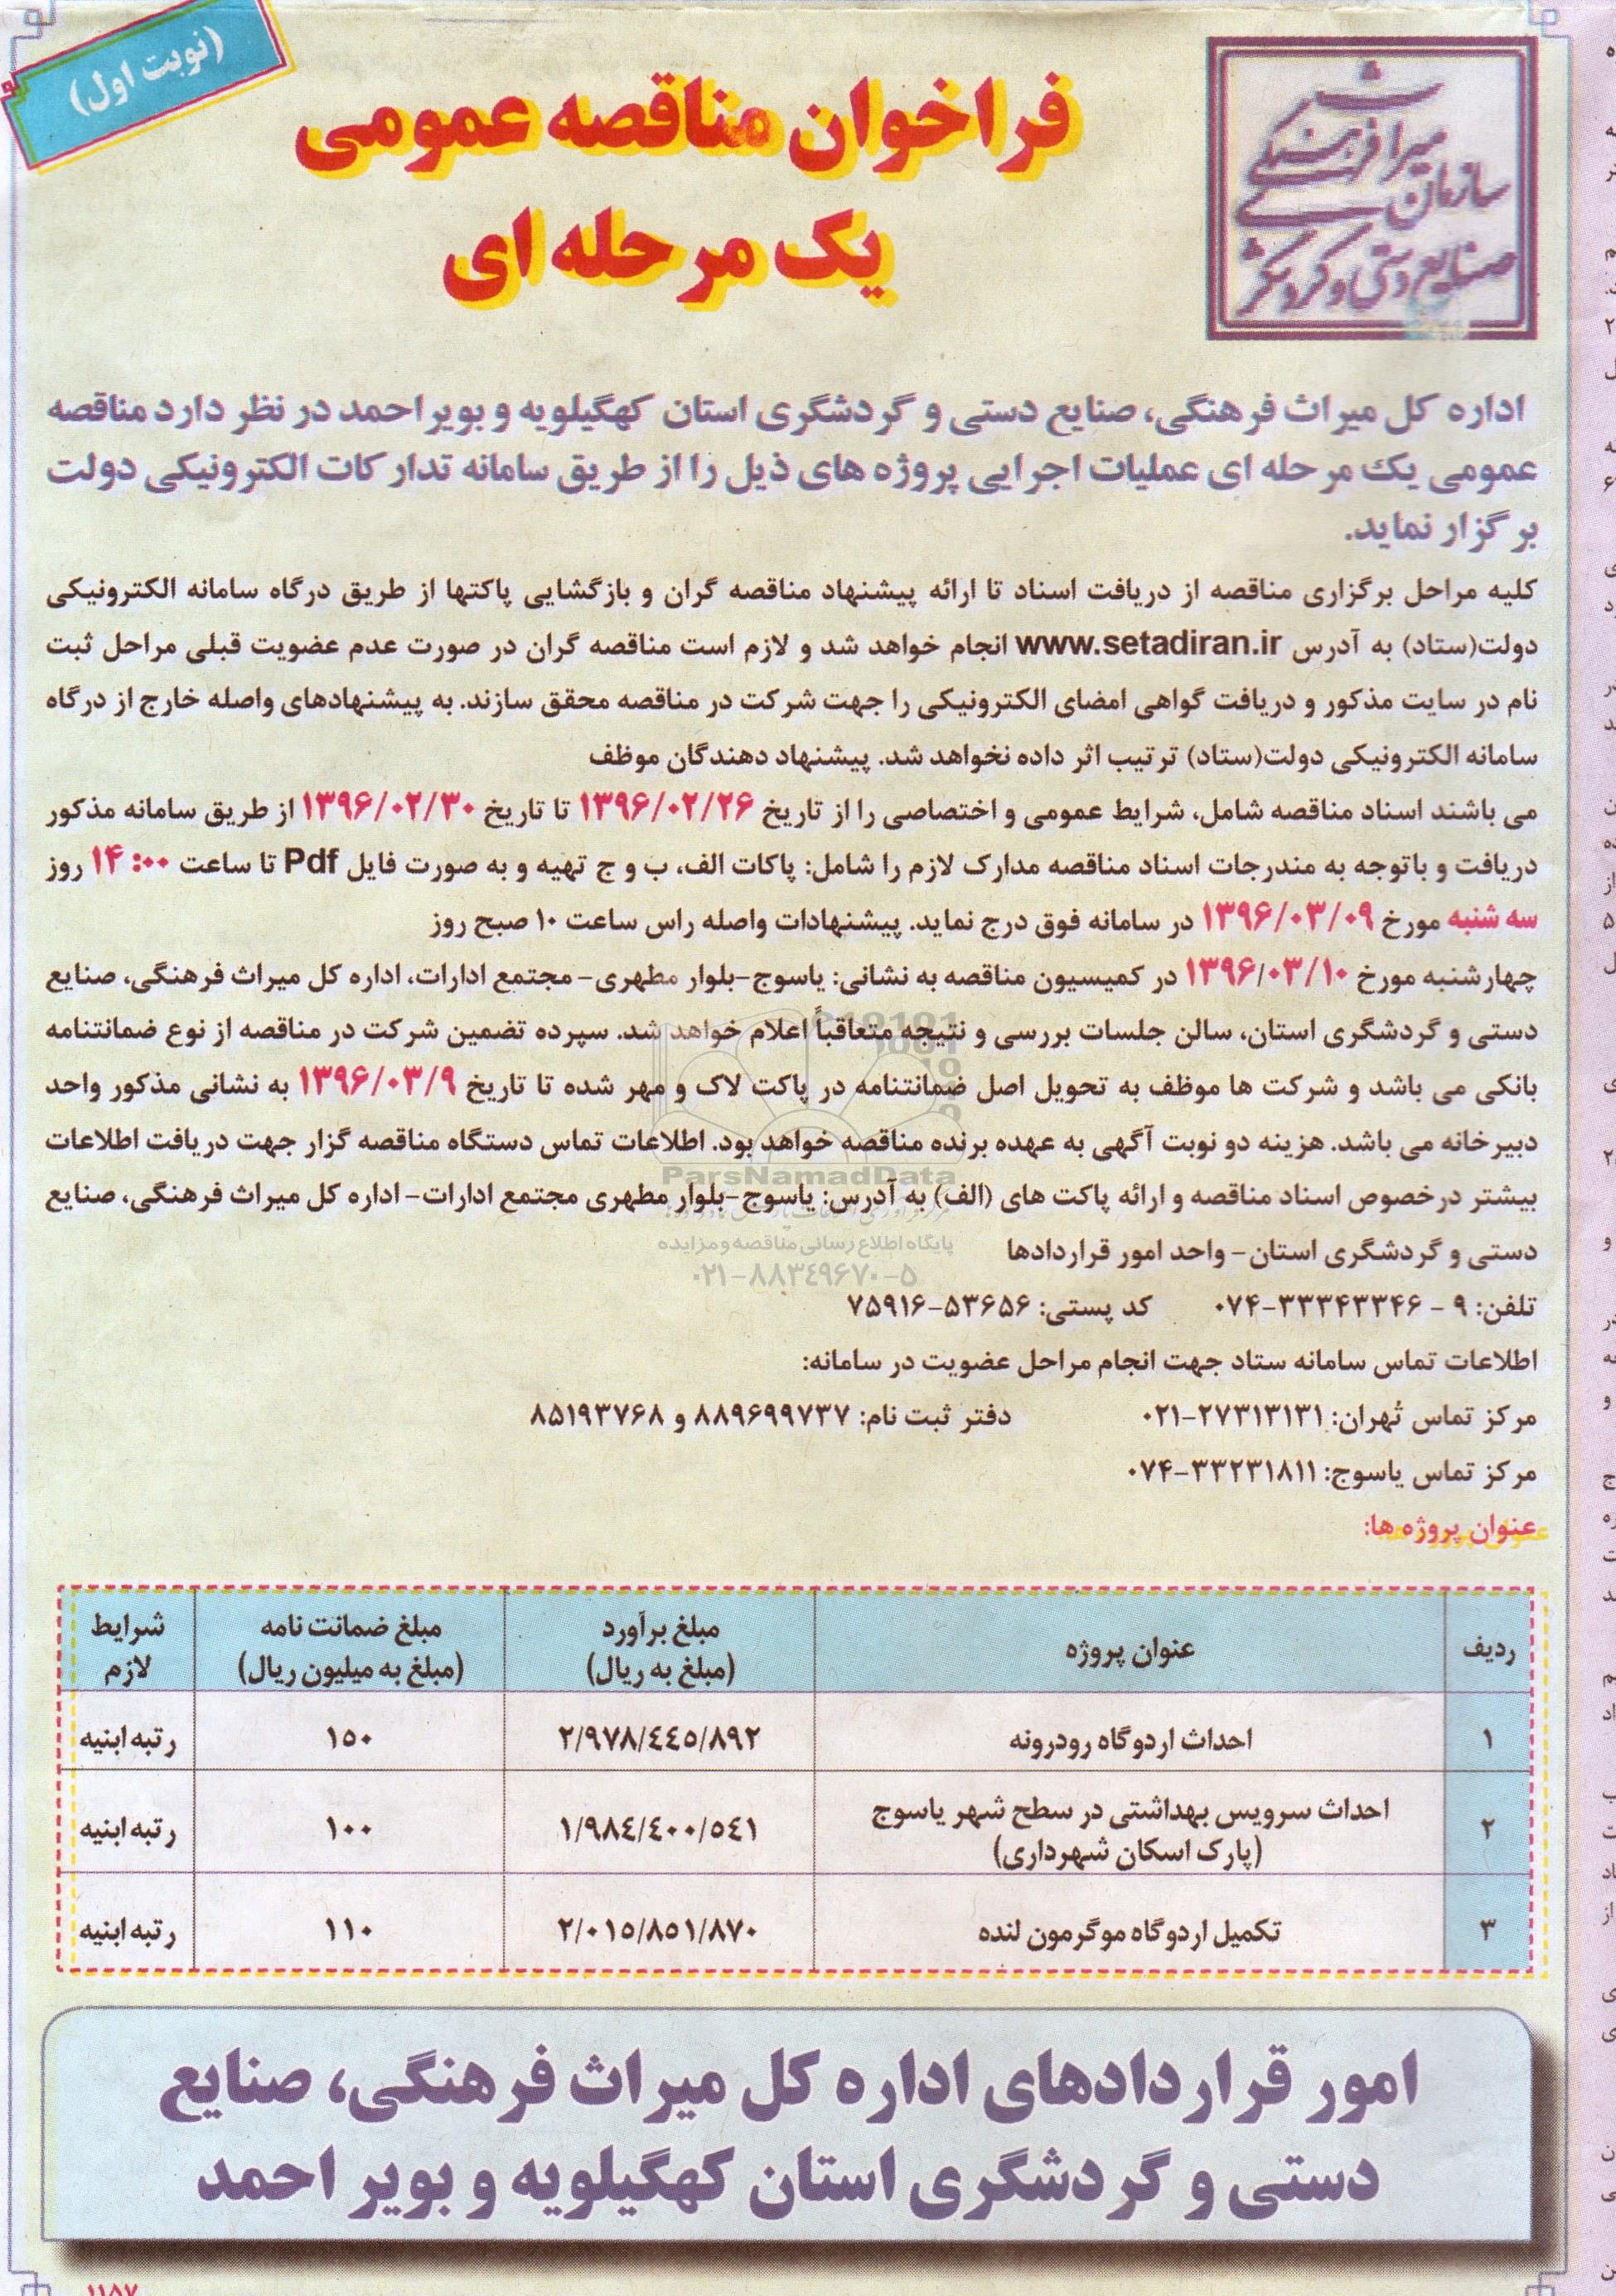 (نوبت اول)
سازمان میراث فرهنگی
صنایع دستی و گردشگری
فراخوان مناقصه عمومی
یک مرحله ای
اداره کل میراث فرهنگی، صنایع دستی و گردشگری استان کهگیلویه و بویراحمد در نظر دارد مناقصه
عمومی یک مرحله ای عملیات اجرایی پروژه های ذیل را از طریق سامانه تدارکات الکترونیکی دولت
برگزار نماید.
کلیه مراحل برگزاری مناقصه از دریافت اسناد تا ارائه پیشنهاد مناقصه گران و بازگشایی پاکتها از طریق درگاه سامانه الکترونیکی
دولت(ستاد) به آدرس www.setadiran.ir انجام خواهد شد و لازم است مناقصه گران در صورت عدم عضویت قبلی مراحل ثبت
نام در سایت مذکور و دریافت گواهی امضای الکترونیکی را جهت شرکت در مناقصه محقق سازند. به پیشنهادهای واصله خارج از درگاه
سامانه الکترونیکی دولت(ستاد) ترتیب اثر داده نخواهد شد. پیشنهاد دهندگان موظف
می باشند اسناد مناقصه شامل، شرایط عمومی و اختصاصی را از تاریخ ۱۳۹۶/۰۲/۲۶ تا تاریخ ۱۳۹۶/۰۲/۳۰ از طریق سامانه مذکور
دریافت و باتوجه به مندرجات اسناد مناقصه مدارک لازم را شامل: پاکات الف، ب و ج تهیه و به صورت فایل Pdf تا ساعت ۱۴:۰۰ روز
سه شنبه مورخ ۱۳۹۶/۰۳/۰۹ در سامانه فوق درج نماید. پیشنهادات واصله راس ساعت ۱۰ صبح روز
چهارشنبه مورخ ۱۳۹۶/۰۳/۱۰ در کمیسیون مناقصه به نشانی: یاسوج-بلوار مطهری- مجتمع ادارات، اداره کل میراث فرهنگی، صنایع
دستی و گردشگری استان، سالن جلسات بررسی و نتیجه متعاقباً اعلام خواهد شد. سپرده تضمین شرکت در مناقصه از نوع ضمانتنامه
بانکی می باشد و شرکت ها موظف به تحویل اصل ضمانتنامه در پاکت لاک و مهر شده تا تاریخ ۱۳۹۶/۰۳/۹ به نشانی مذکور واحد
دبیرخانه می باشد. هزینه دو نوبت آگهی به عهده برنده مناقصه خواهد بود. اطلاعات تماس دستگاه مناقصه گزار جهت دریافت اطلاعات
بیشتر درخصوص اسناد مناقصه و ارائه پاکت های (الف) به آدرس: یاسوج-بلوار مطهری مجتمع ادارات- اداره کل میراث فرهنگی، صنایع
دستی و گردشگری استان- واحد امور قراردادها
ParsNamadData
پایگاه اطلاع رسانی مناقصه و مزایده
۰۲۱-۸۸۳۴۹۶۷۰-۵
تلفن: ۹ - ۰۷۴-۳۳۳۴۳۳۴۶ کد پستی: ۵۳۶۵۶-۷۵۹۱۶
اطلاعات تماس سامانه ستاد جهت انجام مراحل عضویت در سامانه:
مرکز تماس تهران: ۰۲۱-۲۷۳۱۳۱۳۱ دفتر ثبت نام: ۸۸۹۶۹۹۷۳۷ و ۸۵۱۹۳۷۶۸
مرکز تماس یاسوج: ۰۷۴-۳۳۲۳۱۸۱۱
عنوان پروژه ها:
ردیف عنوان پروژه مبلغ برآورد (مبلغ به ریال) مبلغ ضمانت نامه (مبلغ به میلیون ریال) شرایط لازم
۱ احداث اردوگاه رودرونه ۲/۹۷۸/٤٤٥/۸۹۲ ۱۵۰ رتبه ابنیه
۲ احداث سرویس بهداشتی در سطح شهر یاسوج (پارک اسکان شهرداری) ۱/۹۸٤/٤۰۰/٥٤۱ ۱۰۰ رتبه ابنیه
۳ تکمیل اردوگاه موگرمون لنده ۲/۰۱٥/۸٥۱/۸۷۰ ۱۱۰ رتبه ابنیه
امور قراردادهای اداره کل میراث فرهنگی، صنایع
دستی و گردشگری استان کهگیلویه و بویر احمد
۱۱۵۷